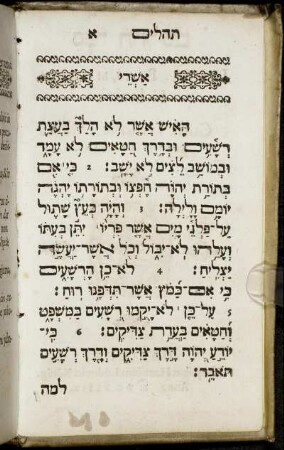 תהלים א
אשרי
הָאִישׁ אֲשֶׁר לֹא הָלַךְ בַּעֲצַת
רְשָׁעִים וּבְדֶרֶךְ חַטָּאִים לֹא עָמָד
וּבְמוֹשַׁב לֵצִים לֹא יָשָׁב׃ 2 כִּי אִם
בְּתוֹרַת יְהוָה חֶפְצוֹ וּבְתוֹרָתוֹ יֶהְגֶּה
יוֹמָם וָלָיְלָה׃ 3 וְהָיָה כְּעֵץ שָׁתוּל
עַל־פַּלְגֵי מָיִם אֲשֶׁר פִּרְיוֹ יִתֵּן בְּעִתּוֹ
וְעָלֵהוּ לֹא־יִבּוֹל וְכֹל אֲשֶׁר־יַעֲשֶׂה
יַצְלִיחַ׃ 4 לֹא־כֵן הָרְשָׁעִים
כִּי אִם־כַּמֹּץ אֲשֶׁר־תִּדְּפֶנּוּ רוּחַ׃
5 עַל־כֵּן לֹא־יָקֻמוּ רְשָׁעִים בַּמִּשְׁפָּט
וְחַטָּאִים בַּעֲדַת צַדִּיקִים׃ 6 כִּי־
יוֹדֵעַ יְהוָה דֶּרֶךְ צַדִּיקִים וְדֶרֶךְ רְשָׁעִים
תֹּאבֵד׃
למה